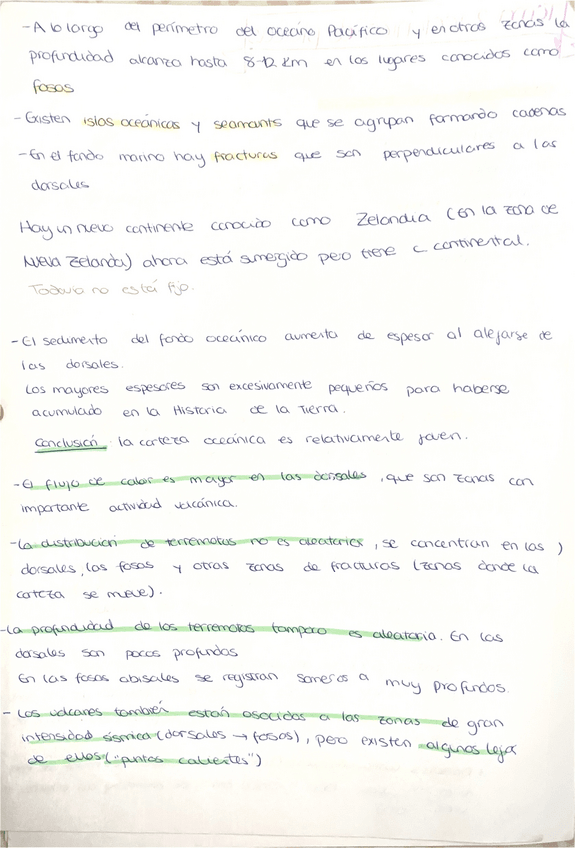 - A lo largo del perímetro del oceáno Pacífico y en otras zonas la
profundidad alcanza hasta 8-12 km en los lugares conocidos como
fosas
- Existen islas oceánicas y seamants que se agrupan formando cadenas
- En el fondo marino hay fracturas que son perpendiculares a las
dorsales
Hay un nuevo continente conocido como Zelandia (en la zona de
Nueva Zelanda) ahora está sumergido pero tiene c continental.
Todavía no está fijo.
- El sedimento del fondo oceánico aumenta de espesor al alejarse de
las dorsales.
Los mayores espesores son excesivamente pequeños para haberse
acumulado en la Historia de la Tierra.
Conclusión la corteza oceánica es relativamente joven.
- El flujo de calor es mayor en las dorsales, que son zonas con
importante actividad volcánica.
- La distribución de terremotos no es aleatoria, se concentran en las )
dorsales, las fosas y otras zonas de fracturas (zonas donde la
corteza se mueve).
- La profundidad de los terremotos tampoco es aleatoria. En las
dorsales son pocos profundos
En las fosas abisales se registran someros a muy profundos.
- Los volcanes también están asociados a las zonas de gran
intensidad sísmica (dorsales → fosas), pero existen algunos lejos
de ellos ("puntos calientes")